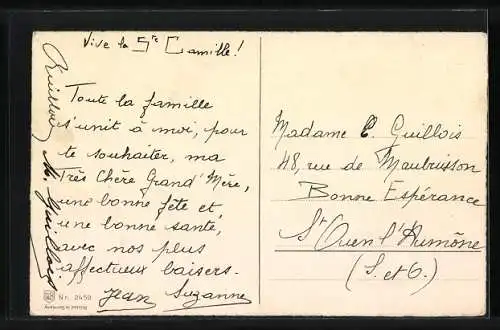 Vive la Ste Camille!
Toute la famille
s'unit à moi, pour
te souhaiter, ma
Très Chère Grand'Mère,
une bonne fête et,
une bonne santé,
avec nos plus
affectueux baisers.
Jean Suzanne
M. Guillois
Madame C. Guillois
48, rue de Maubuisson
Bonne Espérance
St Ouen l'Aumône
(S. et O.)
Nr. 2450